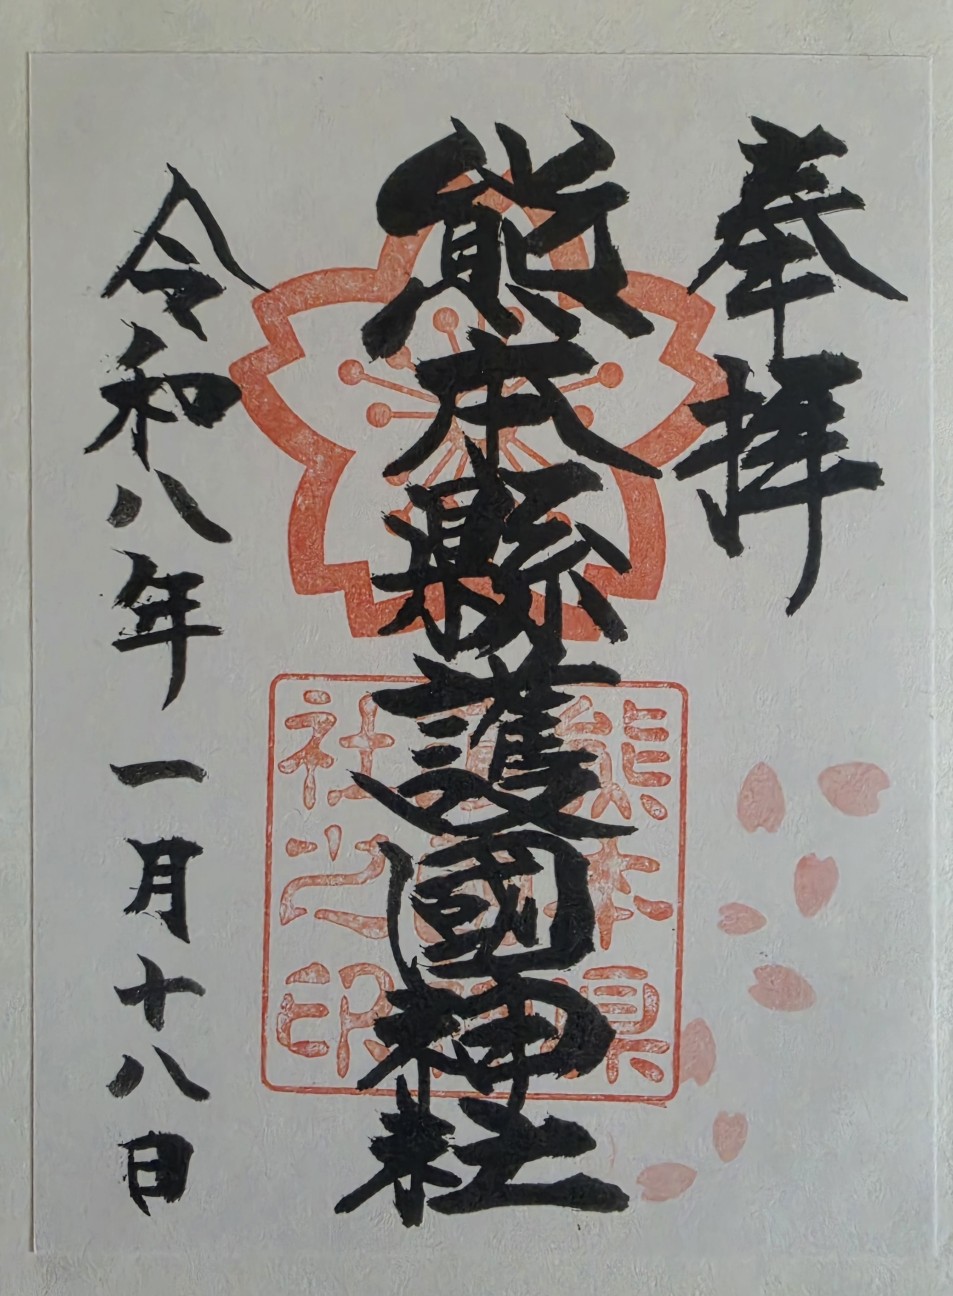 奉拝
熊本縣護國神社
熊本県
社之印
令和八年一月十八日